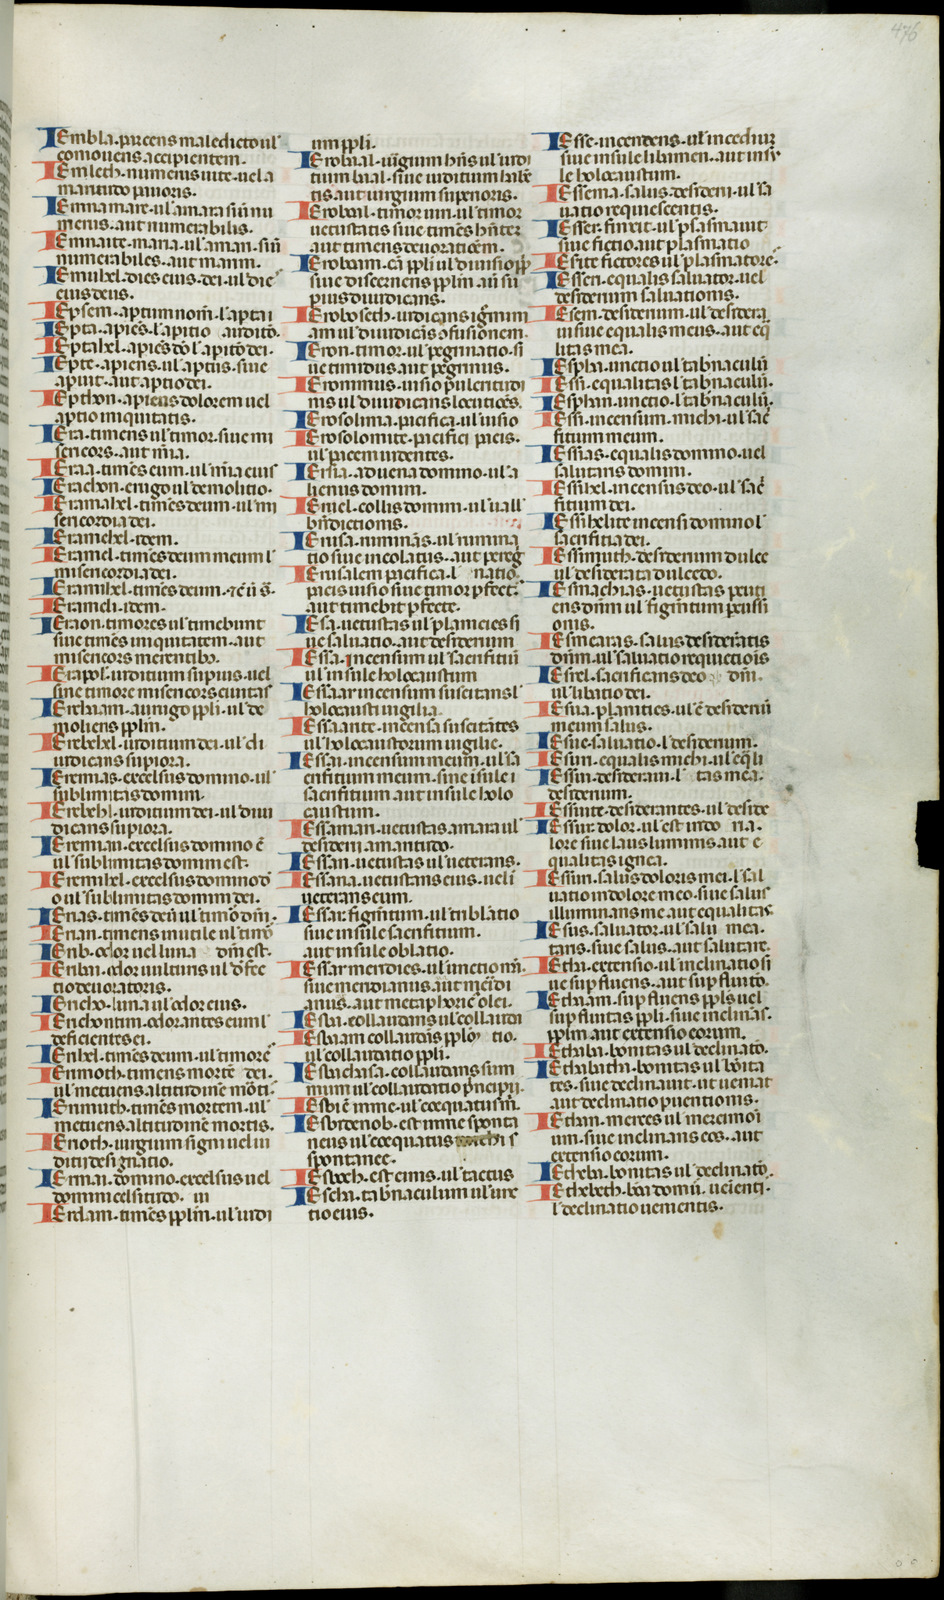 476
IEmbla. parcens maledicto ul'
comouens accipientem.
IEmlech. numerus uite. uel a
maritudo prioris.
IEmnamare. ul' amara siue nu
merus. aut numerabilis.
numerabiles. aut marim.
IEmuhel. dies eius. dei. ul' die
eius deus.
IEpte. apiens. ul' aptus. siue
apuit. aut aptio dei.
IEpthon. apiens dolorem uel
aptio iniquitatis.
IEra. timens ul' timor. siue mi
sericors. aut mia.
IEraa. times eum. ul' mia eius
IErachon. erugo ul' demolitio.
IEramahel. times deum. ul' mi
sericordia dei.
IEramehel. idem.
IEramel. times deum meum l'
misericordia dei.
IErameli. idem.
IEraon. timores ul' timebunt
siue times iniquitatem. aut
misericors merentibus.
IErapol. iuditium supius. uel
siue timore misericors ciuitas
IErebaam. aurigo ppli. ul' de
moliens pplm.
IErebehel. iuditium dei. ul' di
iudicans supiora.
IEremias. excelsus domino. ul'
sublimitas domini.
IErebehl. iuditium dei. ul' diui
dicans supiora.
IEremian. excelsus domino e
ul' sublimitas domini est.
IEremihel. excelsus domino d
o ul' sublimitas domini dei.
IErian. timens inutile ul' timor
IErib. odor uel luna dni est.
tio deuoratoris.
IEricho. luna ul' odor eius.
IErichontim. odorantes eum l'
deficientes ei.
IErihel. times deum. ul' timore
IErimoth. timens morte dei.
ul' metuens altitudine morti.
IErimuth. times mortem. ul'
metuens. altitudine mortis.
IErioth. iurgium signi uel iu
ditii designatio.
IErmai. domino. excelsus uel
domini celsitudo. iii
IErdam. times pplm. ul' iudi
um ppli.
IErobaal. iurgium hns ul' iudi
tium baal. siue iuditium habe
tis aut iurgium superioris.
IErobeal. timorum. ul' timor
uetustatis siue times hnter
aut timens deuoratioem.
siue discernens pplm. aut su
pius diiudicans.
am ul' diiudicas confusionem.
IEron. timor. ul' pegrinatio. si
ue timidus. aut pegrinus.
IEronimus. uisio pulcritudi
nis ul' diiudicans locutioes.
IErosolima. pacifica. ul' uisio
IErosolomite. pacifici pacis.
ul' pacem uidentes.
IErsia. aduena domino. ul' a
lienus domini.
IEruel. collis domini. ul' uall'
bndictionis.
IErusa. ruminas. ul' rumina
tio siue incolatus. aut pereg
IErusalem pacifica. l' natio.
pacis uisio siue timor pfect.
aut timebit pfecte.
IEsa. uetustas ul' planicies si
ue saluatio. aut desiderium
IEssa. incensum ul' sacrifitiu
ul' insule holocaustum
IEssaar incensum suscitans l'
holocausti uigilia.
IEssaante. incensa suscitates
ul' holocaustorum uigilie.
IEssai. incensum meum. ul' sa
crifitium meum. siue isule i
sacrifitium aut insule holo
caustum.
IEssaman. uetustas amara ul'
desiderii amaritudo.
IEssan. uetustas ul' ueterans.
IEssana. uetustans eius. uel i
ueterans eum.
IEssar. figmtum. ul' tribulatio
siue insule sacrifitium.
aut insule oblatio.
IEssar meridies. ul' unctio mi.
siue meridianus. aut meridi
anus. aut metaphorice olei.
IEsba. collaudans ul' collaudi
IEsbaam collaudans pplo tio.
ul' collaudatio ppli.
IEsbachasa. collaudans sum
mum ul' collaudatio principii.
IEsbi e mine. ul' coequatus mi.
IEsbidenob. est mine sponta
neus ul' coequatus michi s
spontanee.
IEsboch. est eius. ul' tactus
IEscha. tabnaculum ul' ure
tio eius.
IEsse. incendens. ul' incediur
siue insule libamen. aut insu
le holocaustum.
IEssema. salus. desiderii. ul' sa
uatio requiescentis.
IEsser. finxit. ul' plasmauit
siue fictio aut plasmatio
IEsrite fictores ul' plasmatore.
IEssen. equalis saluator. uel
desiderium saluationis.
IEsem. desiderium. ul' desidera
ui siue equalis meus. aut eq
litas mea.
IEspha. unctio ul' tabnaculu.
IEssi. equalitas l' tabnaculu.
IEsphan. unctio. l' tabnaculu.
IEssi. incensum. michi. ul' sac
fitium meum.
IEssias. equalis domino. uel
salutaris domini.
IEssihel. incensus deo. ul' sac
fitium dei.
IEssihelite incensi domino l'
sacrifitia dei.
IEssimuth. desiderium dulce
ul' desiderata dulcedo.
IEsmachias. uetustas peniti
ens dnm ul' figmtum penssi
onis.
IEsmearas. salus desideratis
dnm. ul' saluatio requietiois
IEsrel. sacrificans deo dni.
ul' libatio dei.
IEsua. planities. ul' e desideriu
meum salus.
IEsue. saluatio. l' desiderium.
IEsui. equalis michi. ul' equli
IEssui. desideraui. l' tas mea.
desiderium.
IEssuite. desiderantes. ul' deside
IEssur. dolor. ul' est in do ria.
lore siue laus luminis. aut e
qualitas ignea.
IEssuri. salus doloris mei. l' sal
uatio in dolore meo. siue salus
illuminans me. aut equalitas
IEsus. saluator. ul' salu mea.
taris. siue salus. aut salutare.
IEtha. extensio. ul' inclinatio si
ue supfluens. aut supfluito.
IEthaam. supfluens ppls uel
supfluitas ppli. siue inclinas.
pplm. aut extensio eorum.
IEthaba. bonitas ul' declinatio.
IEthabatha. bonitas ul' bonita
tes. siue declinauit. ut ueniat
aut declinatio puentionis.
IEthan. merces ul' mercimoi
um. siue inclinans eos. aut
extensio eorum.
IEtheba. bonitas ul' declinatio.
IEthebeth. bona domii. uenienti.
l' declinatio uenientis.